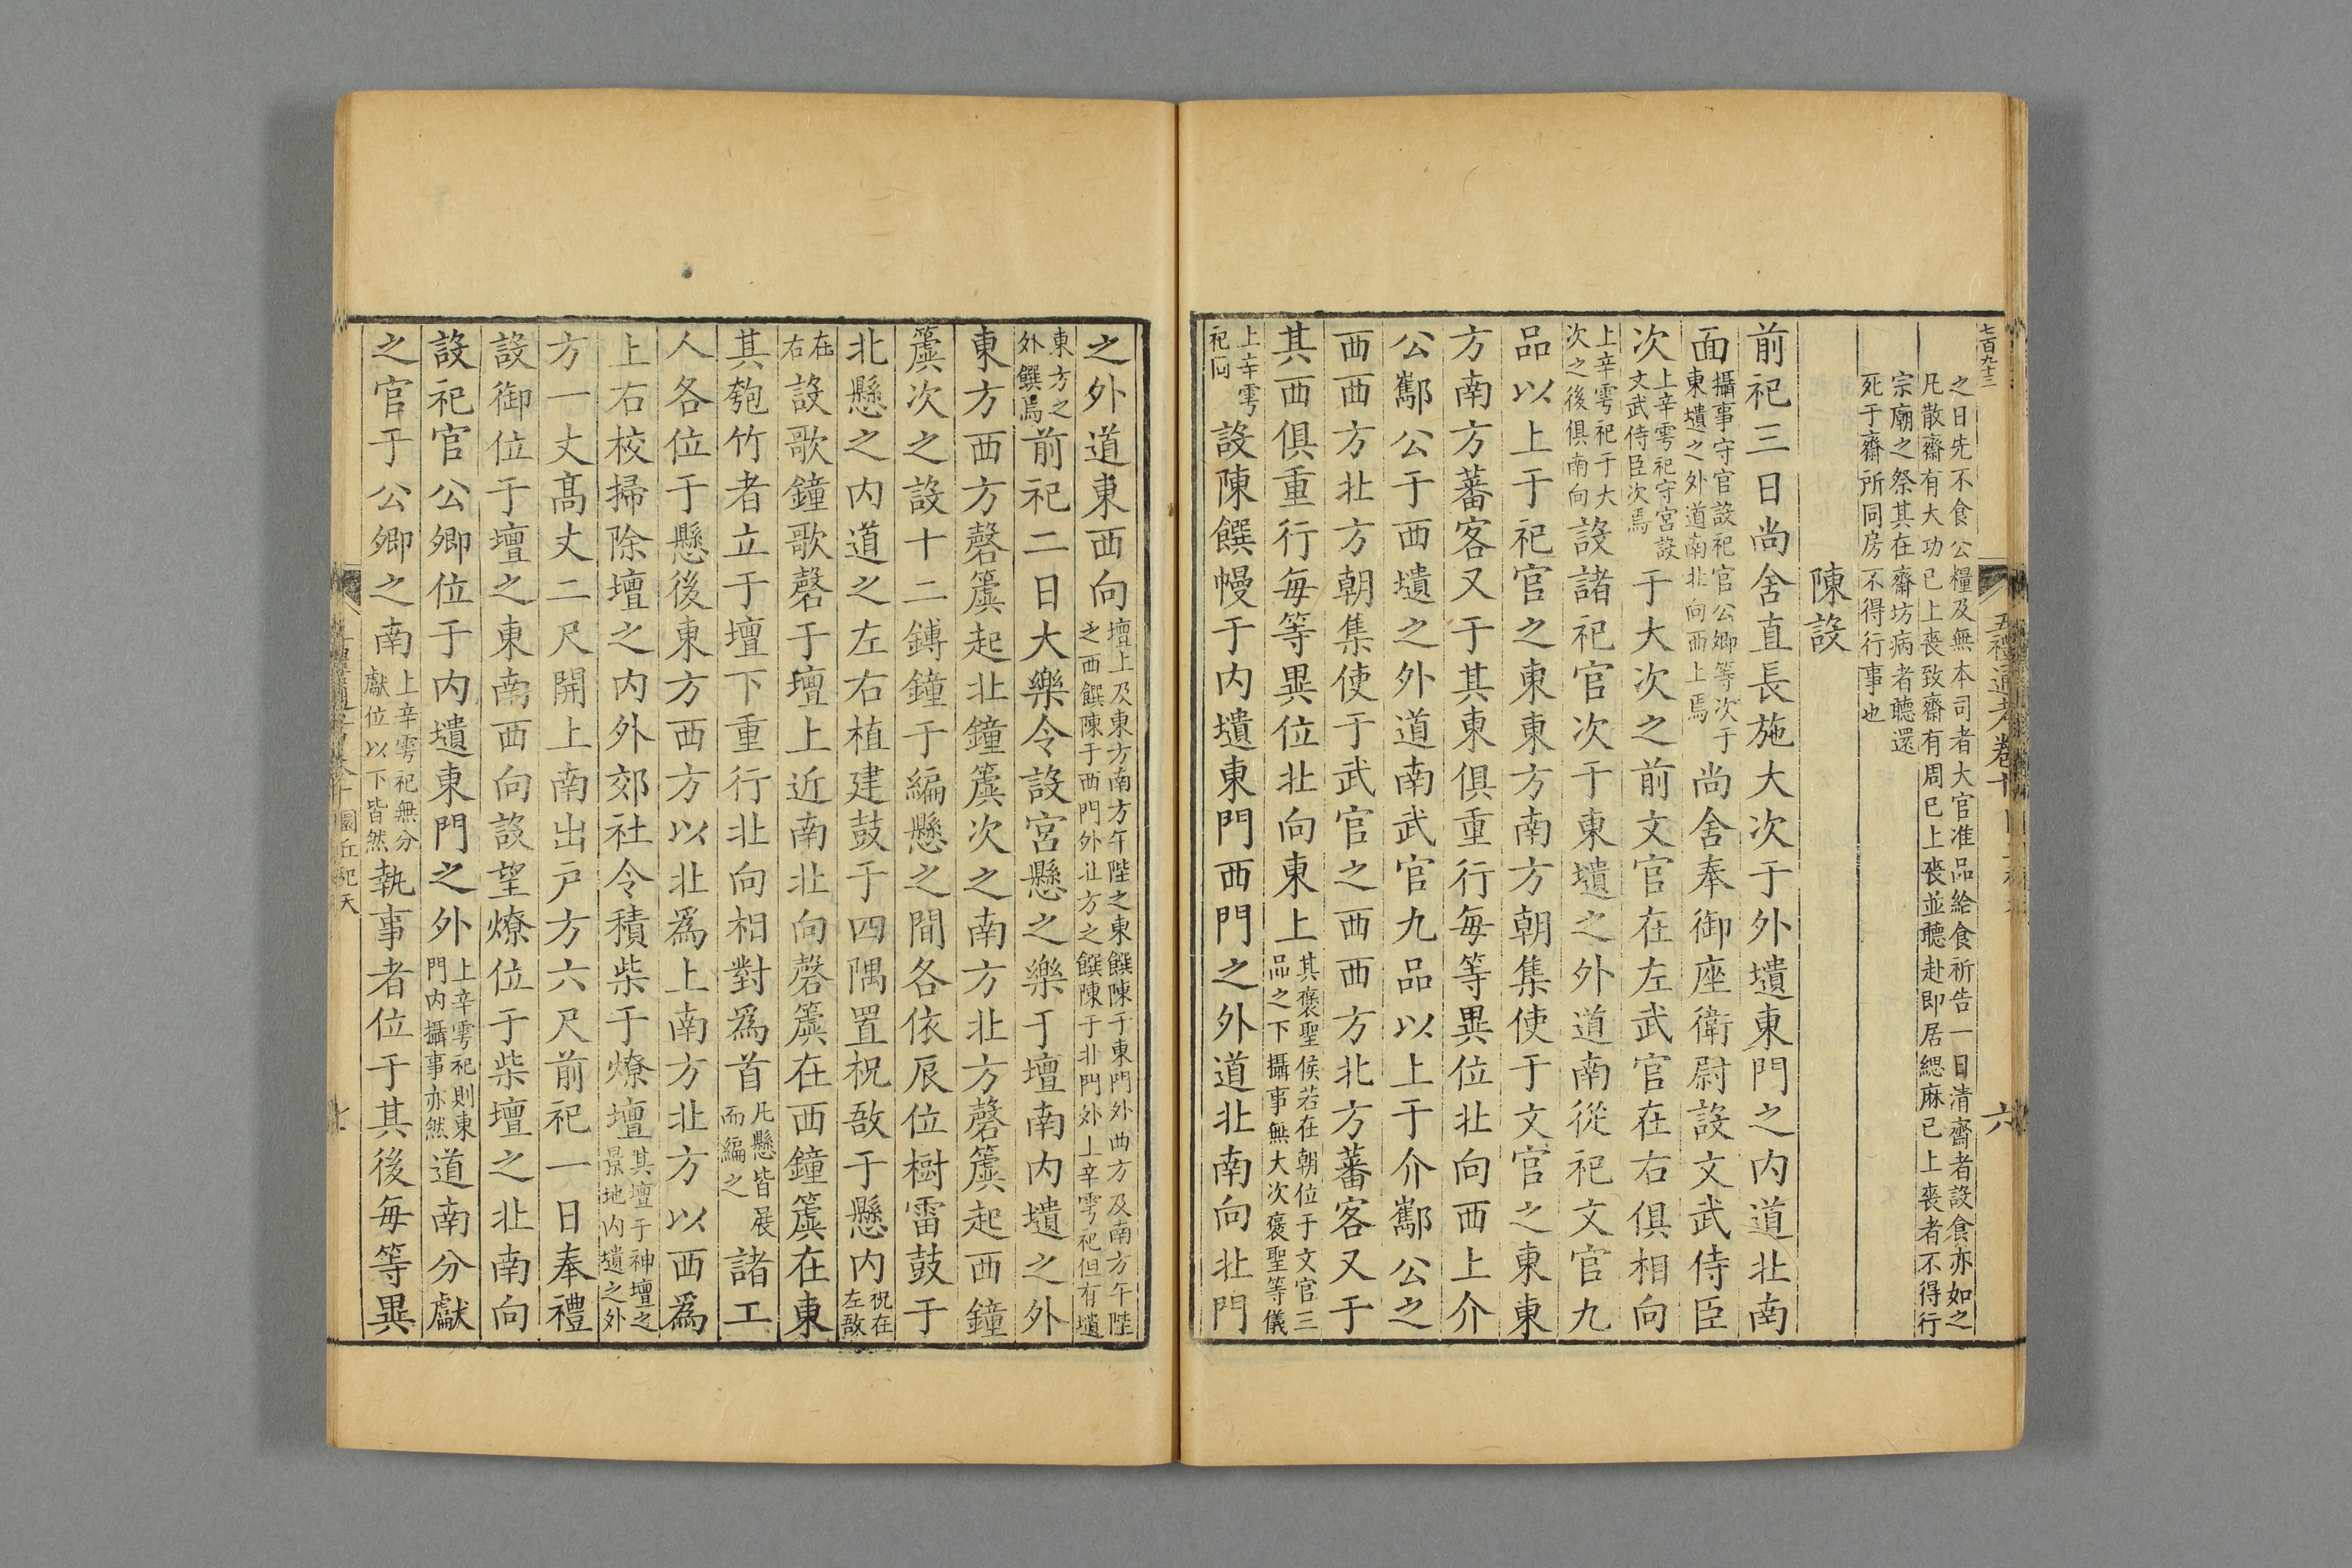 七百九十三
五禮通考卷十
六
之日先不食公糧及無本司者大官准品給食祈告一日清齋者設食亦如之
凡散齋有大功已上喪致齋有周已上喪並聽赴即居緦麻已上喪者不得行
宗廟之祭其在齋坊病者聽還
死于齋所同房不得行事也
陳設
前祀三日尚舍直長施大次于外壝東門之內道北南
面攝事守官設祀官公卿等次于東壝之外道南北向西上焉尚舍奉御座衛尉設文武侍臣
次上辛雩祀守宮設文武侍臣次焉于大次之前文官在左武官在右俱相向
上辛雩祀于大次之後俱南向設諸祀官次于東壝之外道南從祀文官九
品以上于祀官之東東方南方朝集使于文官之東東
方南方蕃客又于其東俱重行每等異位北向西上介
公酅公于西壝之外道南武官九品以上于介酅公之
西西方北方朝集使于武官之西西方北方蕃客又于
其西俱重行每等異位北向東上其褒聖侯若在朝位于文官三品之下攝事無大次褒聖等儀
上辛雩祀同設陳饌幔于內壝東門西門之外道北南向北門
之外道東西向壇上及東方南方午陛之東饌陳于東門外西方及南方午陛之西饌陳于西門外北方之饌陳于北門外上辛雩祀但有壝
東方之外饌焉前祀二日大樂令設宮懸之樂于壇南內壝之外
東方西方磬簴起北鐘簴次之南方北方磬簴起西鐘
簴次之設十二鎛鐘于編懸之間各依辰位樹雷鼓于
北懸之內道之左右植建鼓于四隅置柷敔于懸內柷在左敔
在右設歌鐘歌磬于壇上近南北向磬簴在西鐘簴在東
其匏竹者立于壇下重行北向相對爲首凡懸皆展而編之諸工
人各位于懸後東方西方以北爲上南方北方以西爲
上右校掃除壇之內外郊社令積柴于燎壇其壇于神壇之景地內壝之外
方一丈高丈二尺開上南出戶方六尺前祀一日奉禮
設御位于壇之東南西向設望燎位于柴壇之北南向
設祀官公卿位于內壝東門之外上辛雩祀則東門內攝事亦然道南分獻
之官于公卿之南上辛雩祀無分獻位以下皆然執事者位于其後每等異
圜丘祀天
七